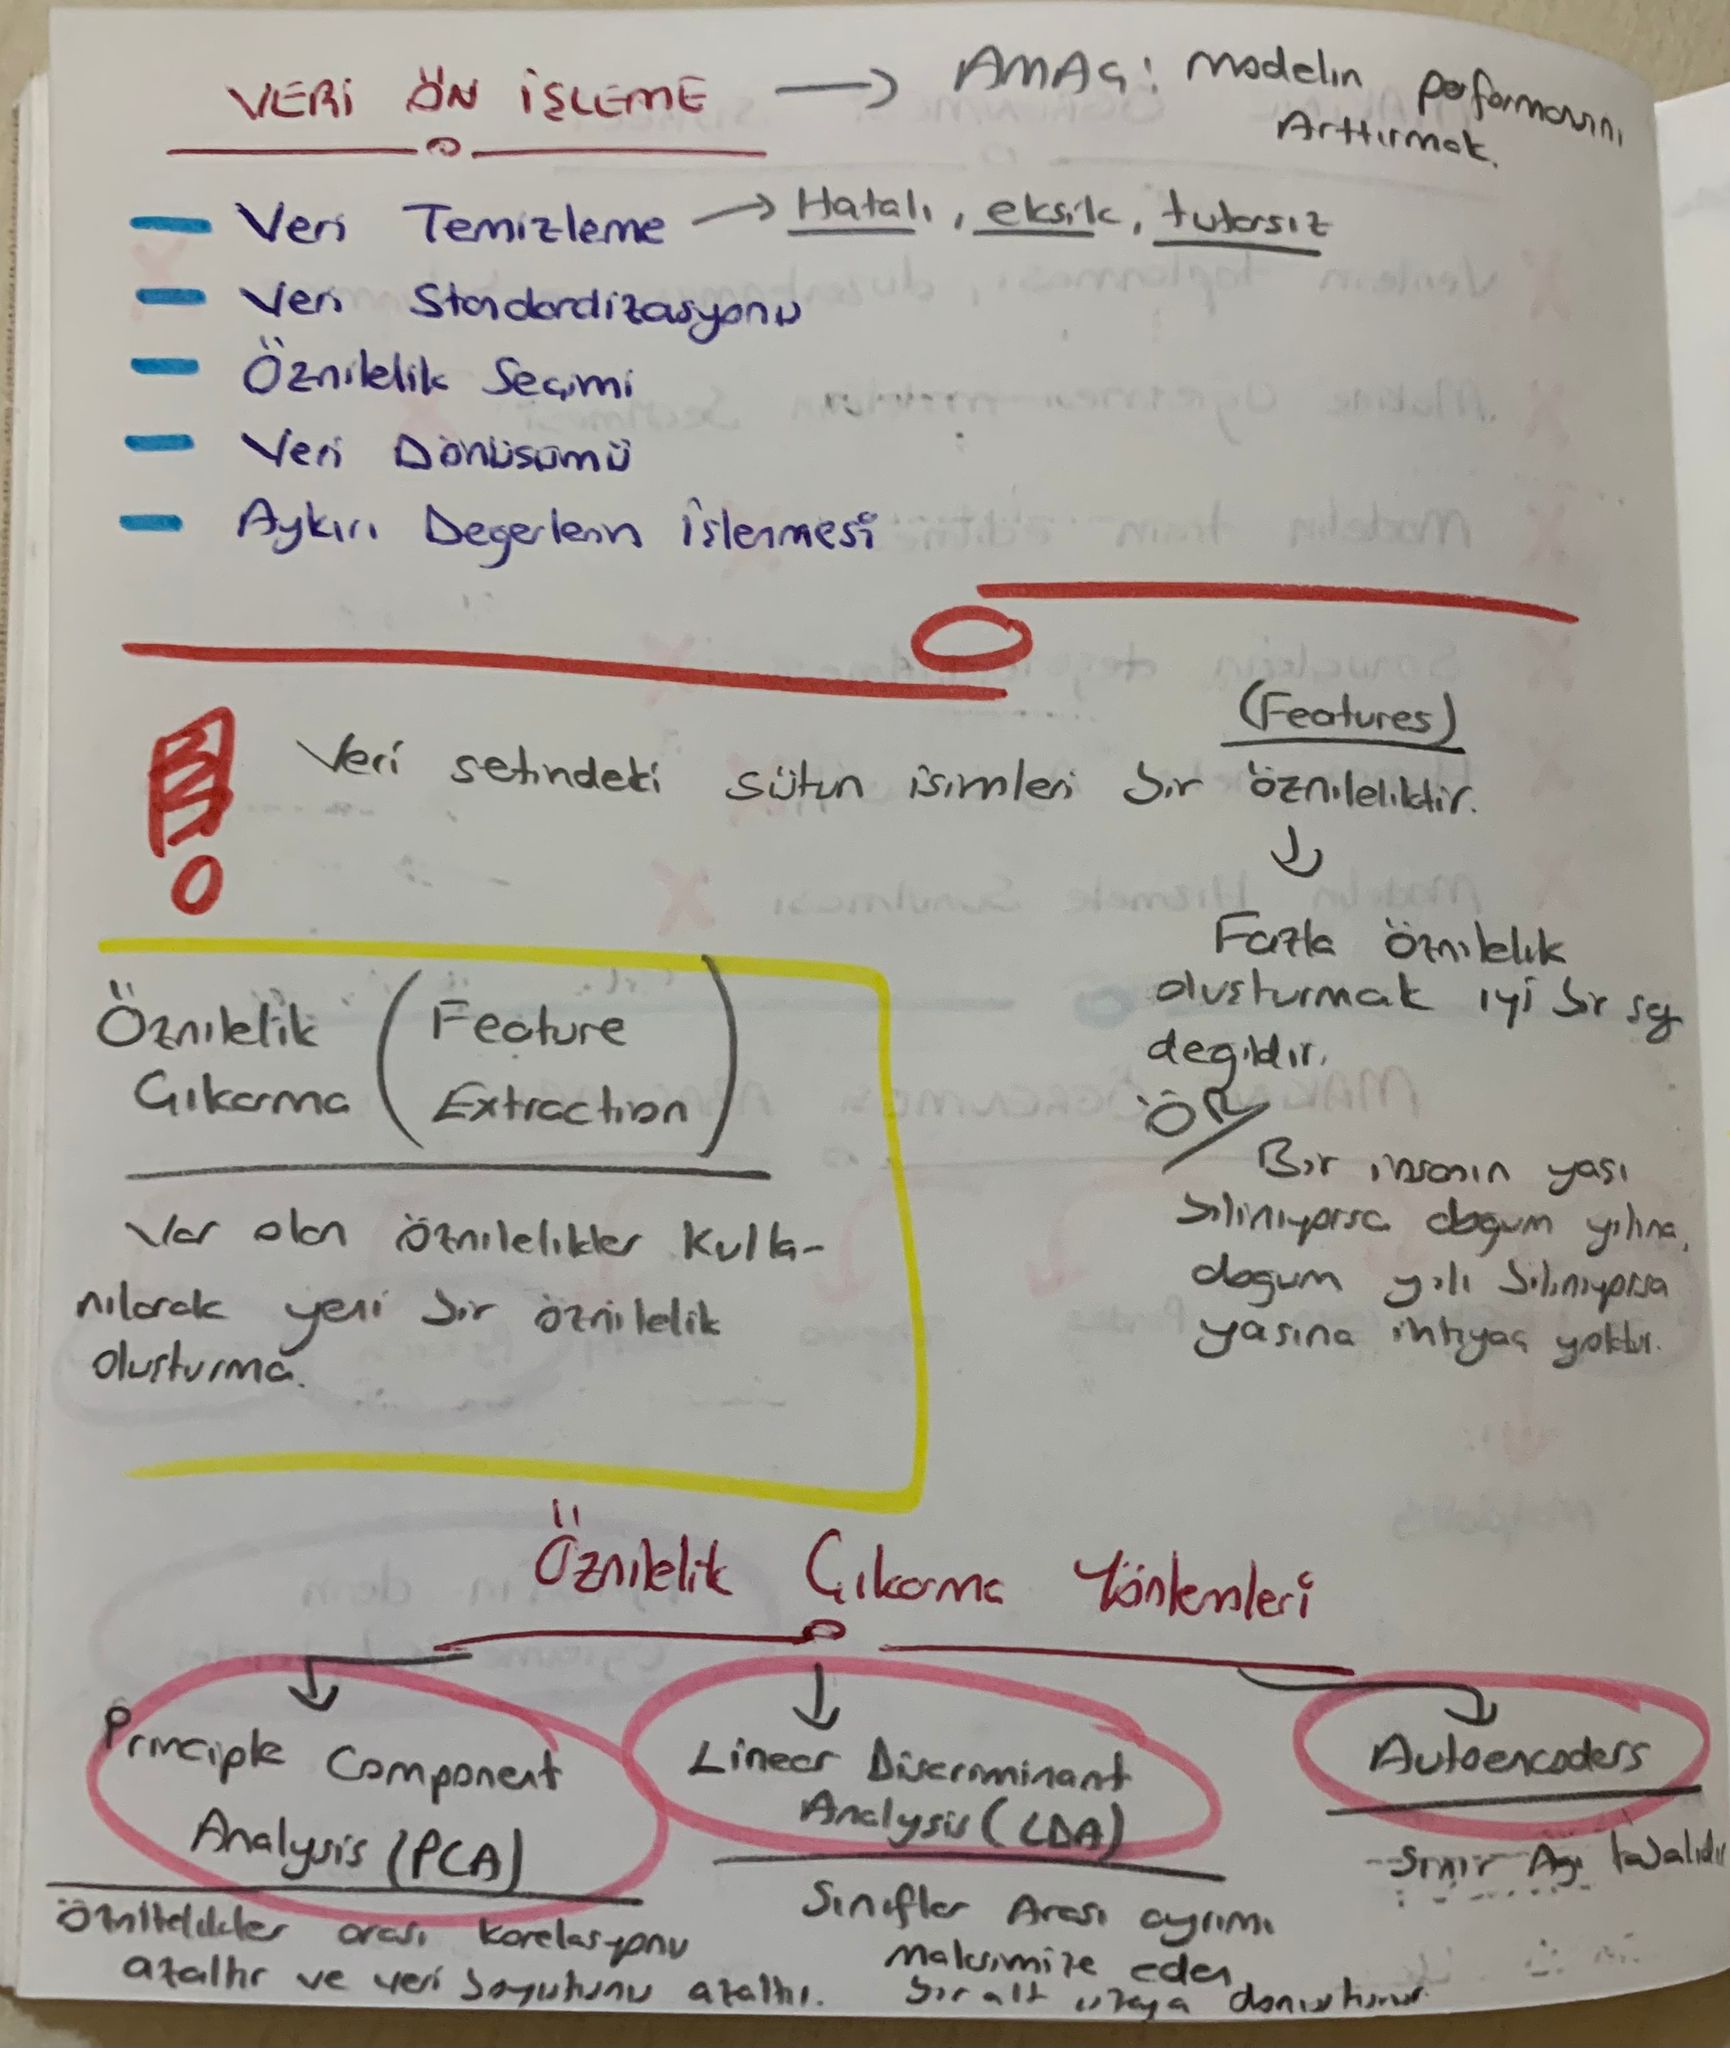 VERİ ÖN İŞLEME → AMAÇ: Modelin performansını
Arttırmak.
Veri Temizleme → Hatalı, eksik, tutarsız
Veri Standardizasyonu
Öznitelik Seçimi
Veri Dönüsümü
Aykırı Degerlerin İşlenmesi
(Features)
Veri setindeki sütun isimleri bir özniteliktir.
Fazla öznitelik
oluşturmak iyi bir şey
degildir.
ÖR/
Bir insanın yaşı
biliniyorsa dogum yılına,
dogum yılı biliniyorsa
yaşına ihtiyaç yoktur.
Öznitelik (Feature
Çıkarma Extraction)
Var olan öznitelikler kulla-
nılarak yeni bir öznitelik
oluşturma.
Öznitelik Çıkarma Yöntemleri
Principle Component
Analysis (PCA)
Öznitelikler arası korelasyonu
azaltır ve veri boyutunu azaltır.
Lineer Discriminant
Analysis (LDA)
Sınıflar Arası ayrımı
maksimize eden
bir alt uzaya dönüştürür.
Autoencoders
Sinir Ağı tabalıdır